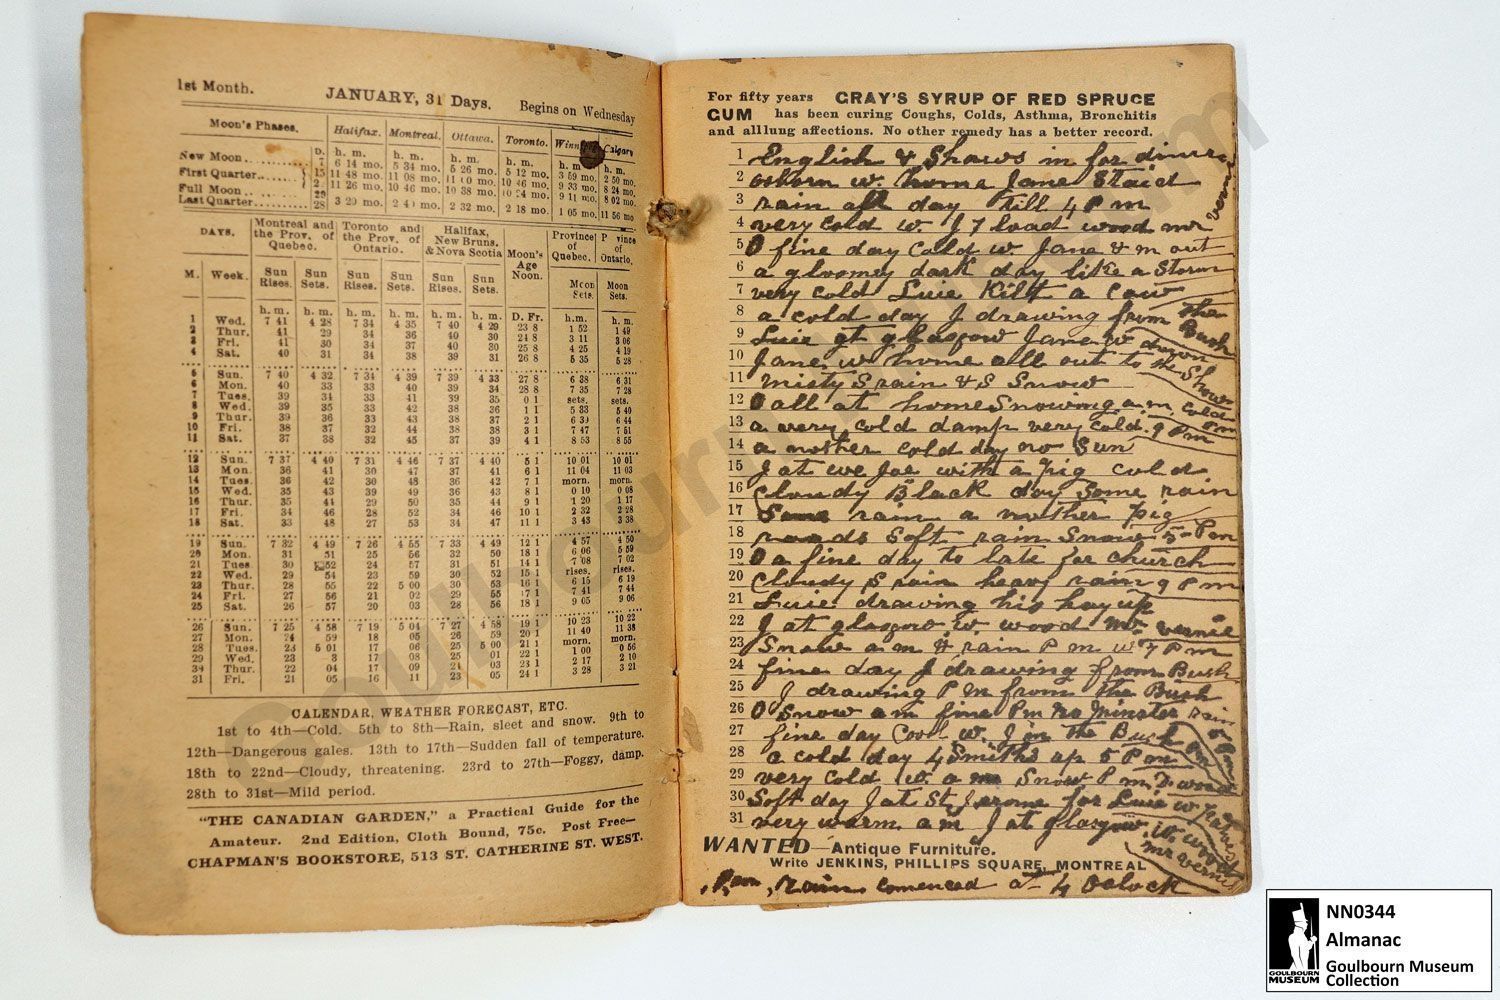 1st Month. JANUARY, 31 Days. Begins on Wednesday
Moon's Phases. D. Halifax. Montreal. Ottawa. Toronto. Calgary
h. m. h. m. h. m. h. m. h. m. h. m.
New Moon 7 6 14 mo. 5 34 mo. 5 26 mo. 5 12 mo. 3 59 mo. 2 50 mo.
First Quarter 15 11 48 mo. 11 08 mo. 11 00 mo. 10 46 mo. 9 33 mo. 8 24 mo.
Full Moon 11 26 mo. 10 46 mo. 10 38 mo. 10 24 mo. 9 11 mo. 8 02 mo.
Last Quarter 28 3 20 mo. 2 40 mo. 2 32 mo. 2 18 mo. 1 05 mo. 11 56 mo
DAYS. Montreal and the Prov. of Quebec. Toronto and the Prov. of Ontario. Halifax, New Bruns. & Nova Scotia Moon's Age Noon. Province of Quebec. Province of Ontario.
M. Week. Sun Rises. Sun Sets. Sun Rises. Sun Sets. Sun Rises. Sun Sets. Moon Sets. Moon Sets.
h. m. h. m. h. m. h. m. h. m. h. m. D. Fr. h.m. h. m.
1 Wed. 7 41 4 28 7 34 4 35 7 40 4 29 23 8 1 52 1 49
2 Thur. 41 29 34 36 40 30 24 8 3 11 3 06
3 Fri. 41 30 34 37 40 30 25 8 4 25 4 19
4 Sat. 40 31 34 38 39 31 26 8 5 35 5 28
5 Sun. 7 40 4 32 7 34 4 39 7 39 4 33 27 8 6 38 6 31
6 Mon. 40 33 33 40 39 34 28 8 7 35 7 28
7 Tues. 39 34 33 41 39 35 0 1 sets. sets.
8 Wed. 39 35 33 42 38 36 1 1 5 33 5 40
9 Thur. 39 36 33 43 38 37 2 1 6 39 6 44
10 Fri. 38 37 32 44 38 38 3 1 7 47 7 51
11 Sat. 37 38 32 45 37 39 4 1 8 53 8 55
12 Sun. 7 37 4 40 7 31 4 46 7 37 4 40 5 1 10 01 10 01
13 Mon. 36 41 30 47 37 41 6 1 11 04 11 03
14 Tues. 36 42 30 48 36 42 7 1 morn. morn.
15 Wed. 35 43 39 49 36 43 8 1 0 10 0 08
16 Thur. 35 44 29 50 35 44 9 1 1 20 1 17
17 Fri. 34 46 28 52 34 46 10 1 2 32 2 28
18 Sat. 33 48 27 53 34 47 11 1 3 43 3 38
19 Sun. 7 32 4 49 7 26 4 55 7 33 4 49 12 1 4 57 4 50
20 Mon. 31 51 25 56 32 50 18 1 6 06 5 59
21 Tues 30 52 24 57 31 51 14 1 7 08 7 02
22 Wed. 29 54 23 59 30 52 15 1 rises. rises.
23 Thur. 28 55 22 5 00 30 53 16 1 6 15 6 19
24 Fri. 27 56 21 02 29 55 17 1 7 41 7 44
25 Sat. 26 57 20 03 28 56 18 1 9 05 9 06
26 Sun. 7 25 4 58 7 19 5 04 7 27 4 58 19 1 10 23 10 22
27 Mon. 24 59 18 05 26 59 20 1 11 40 11 38
28 Tues. 23 5 01 17 06 25 5 00 21 1 morn. morn.
29 Wed. 23 3 17 08 25 01 22 1 1 00 0 56
30 Thur. 22 04 17 09 24 03 23 1 2 17 2 10
31 Fri. 21 05 16 11 23 05 24 1 3 28 3 21
CALENDAR, WEATHER FORECAST, ETC.
1st to 4th—Cold. 5th to 8th—Rain, sleet and snow. 9th to
12th—Dangerous gales. 13th to 17th—Sudden fall of temperature.
18th to 22nd—Cloudy, threatening. 23rd to 27th—Foggy, damp.
28th to 31st—Mild period.
"THE CANADIAN GARDEN," a Practical Guide for the
Amateur. 2nd Edition, Cloth Bound, 75c. Post Free—
CHAPMAN'S BOOKSTORE, 513 ST. CATHERINE ST. WEST.
For fifty years GRAY'S SYRUP OF RED SPRUCE
GUM has been curing Coughs, Colds, Asthma, Bronchitis
and all lung affections. No other remedy has a better record.
1 English & Shaws in for dinner
2 osborn w. home Jane Staid
3 rain all day till 4 P m
4 very cold w. J 7 load wood mr vernie
5 O fine day Cold w Jane & m out
6 a gloomey dark day like a Storm
7 very cold Luie Kilt a Cow
8 a cold day J drawing from the Bush
9 Luie at glasgow Jane w drawn
10 Jane w home all out to the Show
11 misty S rain & S Snow
12 O all at home Snowing a m cold P m
13 a very cold damp very cold 9 P m
14 a nother cold day no Sun
15 J at we Joe with a Pig cold
16 Cloudy Black day Some rain
17 Some rain a nother Pig
18 roads Soft rain Snow 5 P m
19 O a fine day to late for church
20 Cloudy S rain heavy rain 9 P m
21 Luie drawing his hay up
22 J at glasgow w. wood mr vernie
23 Snow a m & rain P m w 7 P m
24 fine day J drawing from Bush
25 J drawing P m from the Bush
26 O Snow a m fine P m no minster rain
27 fine day Cool w. J in the Bush
28 a cold day 4 Smiths up 5 P m
29 very cold w. a m Snow P m wood
30 Soft day J at St Jerome for Luie w
31 very warm a m J at glasgow w wood mr vernie
WANTED—Antique Furniture.
Write JENKINS, PHILLIPS SQUARE, MONTREAL
P m, rain comenced at 4 Oclock
NN0344
Almanac
Goulbourn Museum
Collection
GOULBOURN
MUSEUM